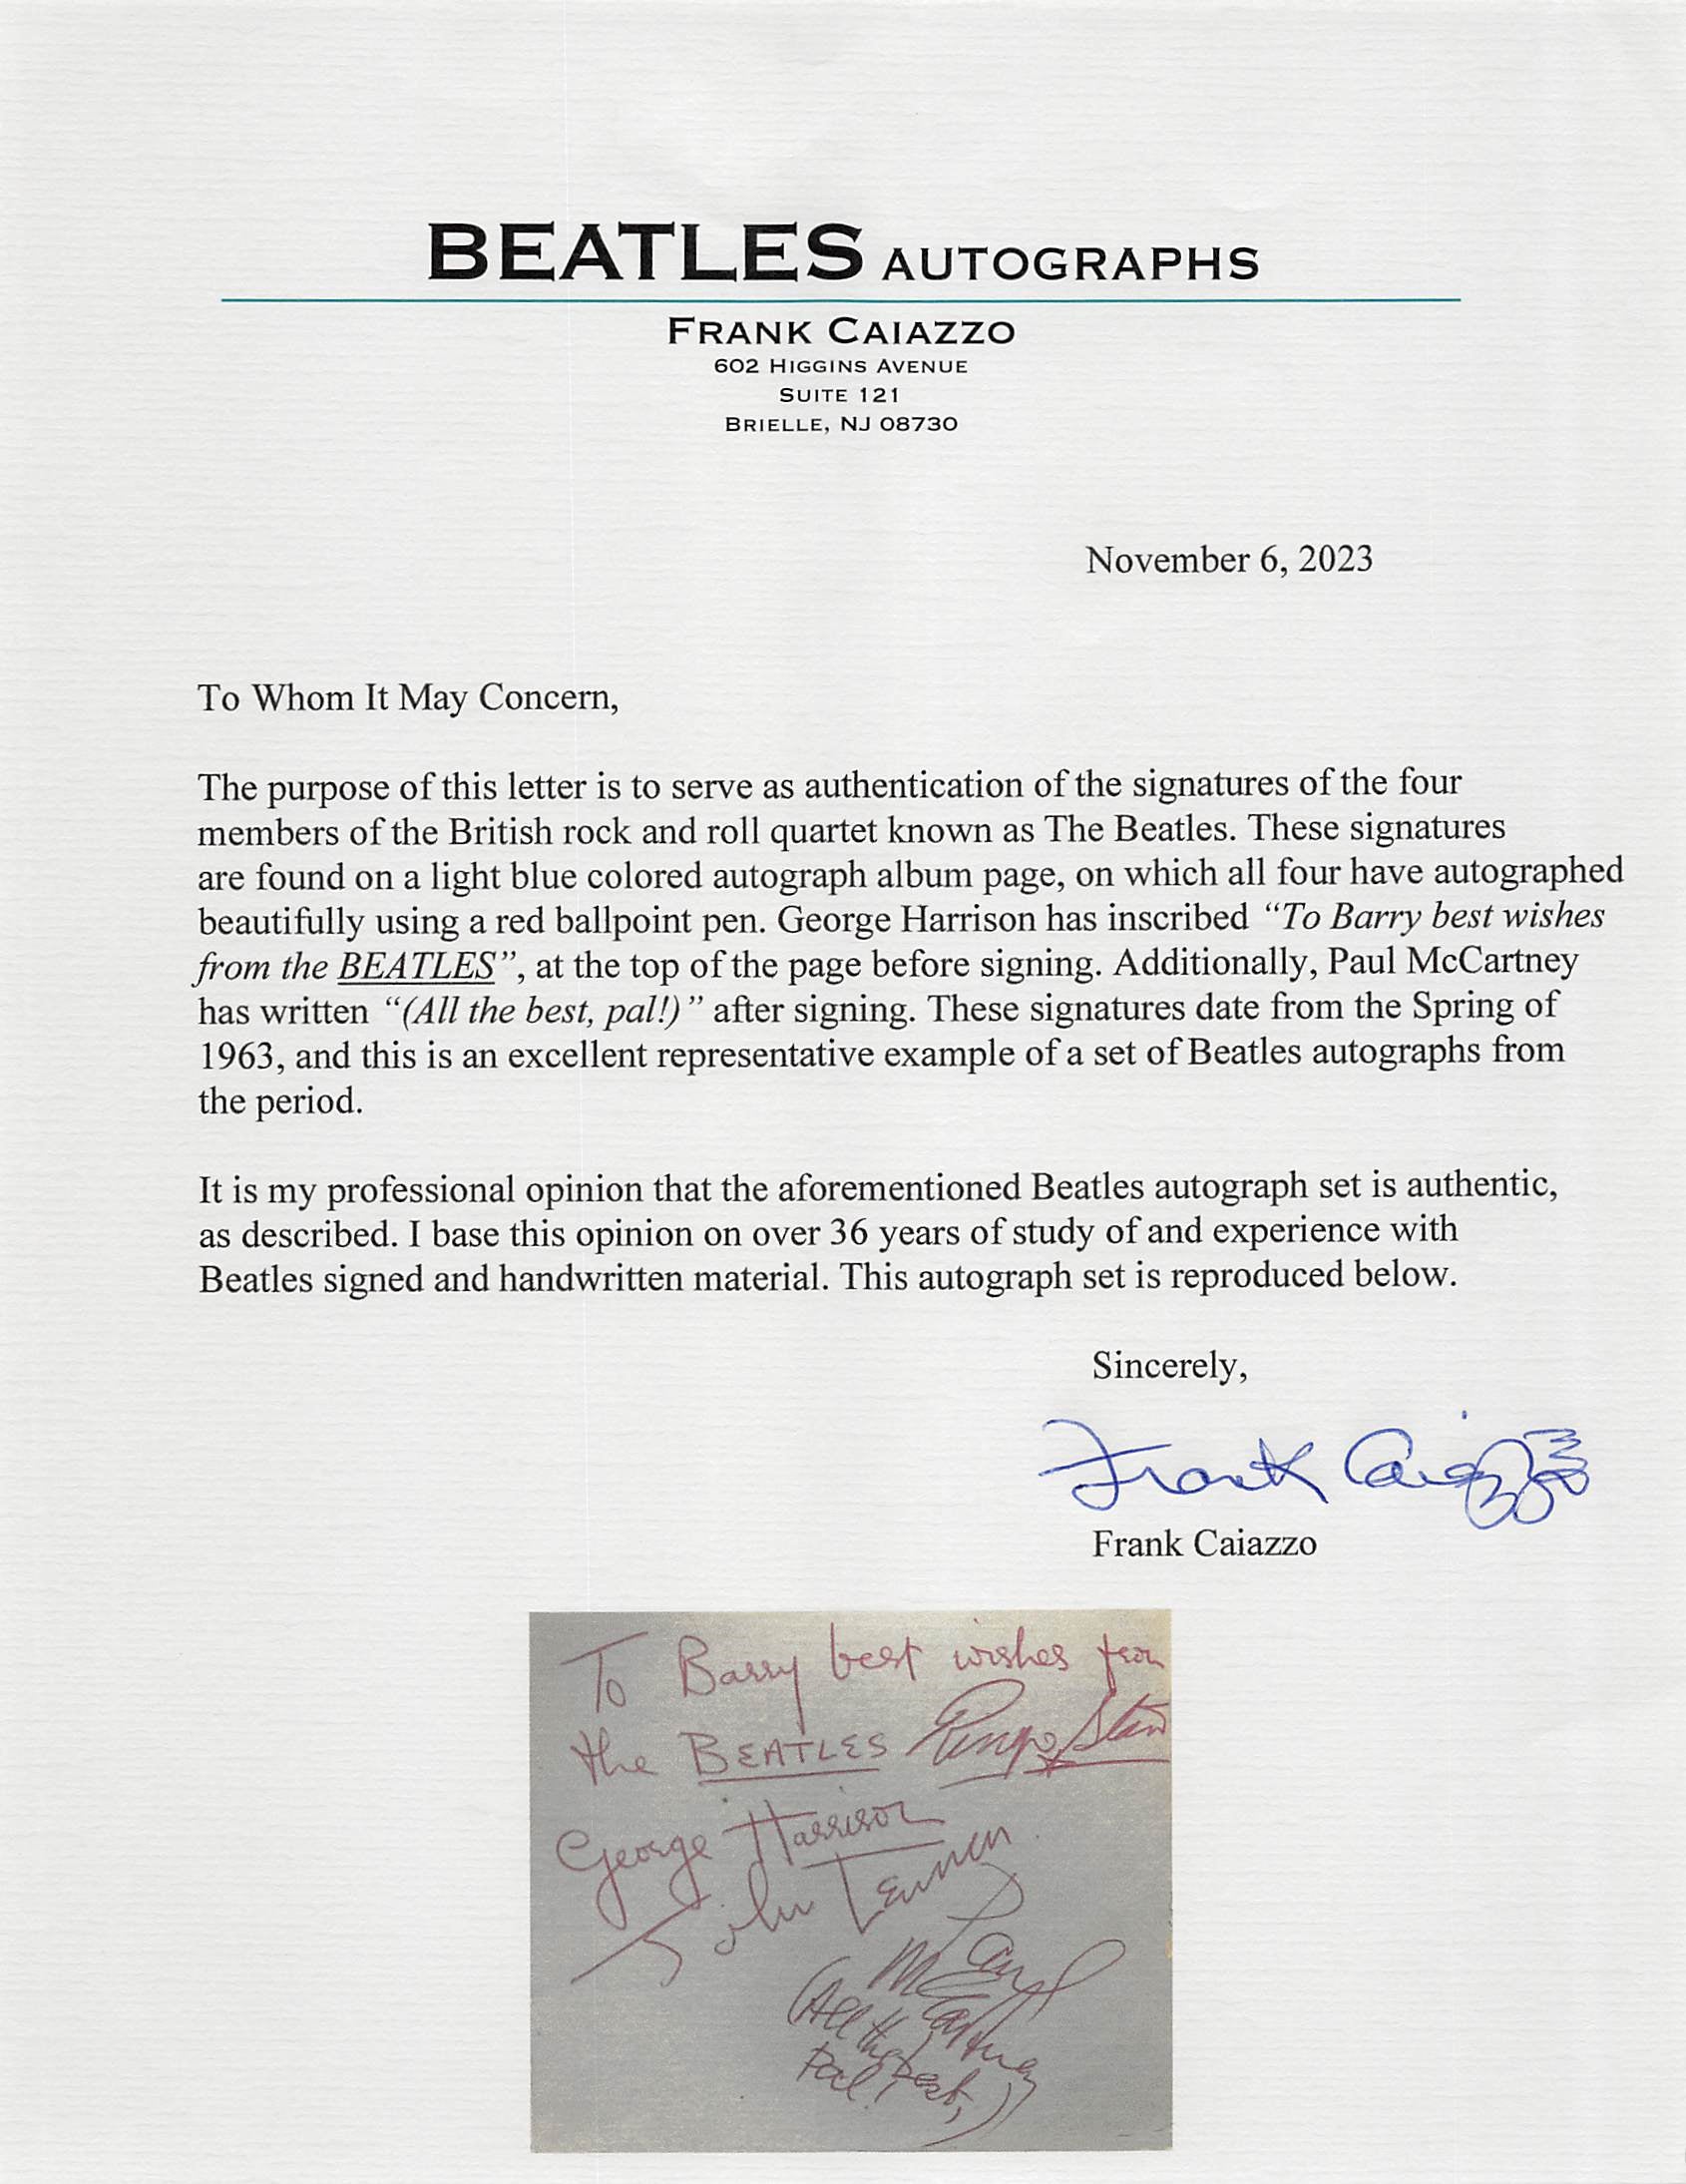 BEATLES AUTOGRAPHS
FRANK CAIAZZO
602 HIGGINS AVENUE
SUITE 121
BRIELLE, NJ 08730
November 6, 2023
To Whom It May Concern,
The purpose of this letter is to serve as authentication of the signatures of the four
members of the British rock and roll quartet known as The Beatles. These signatures
are found on a light blue colored autograph album page, on which all four have autographed
beautifully using a red ballpoint pen. George Harrison has inscribed “To Barry best wishes
from the BEATLES”, at the top of the page before signing. Additionally, Paul McCartney
has written “(All the best, pal!)” after signing. These signatures date from the Spring of
1963, and this is an excellent representative example of a set of Beatles autographs from
the period.
It is my professional opinion that the aforementioned Beatles autograph set is authentic,
as described. I base this opinion on over 36 years of study of and experience with
Beatles signed and handwritten material. This autograph set is reproduced below.
Sincerely,
Frank Caiazzo
Frank Caiazzo
To Barry best wishes from
the BEATLES Ringo Starr
George Harrison
John Lennon
Paul
McCartney
(All the best,
Pal!)